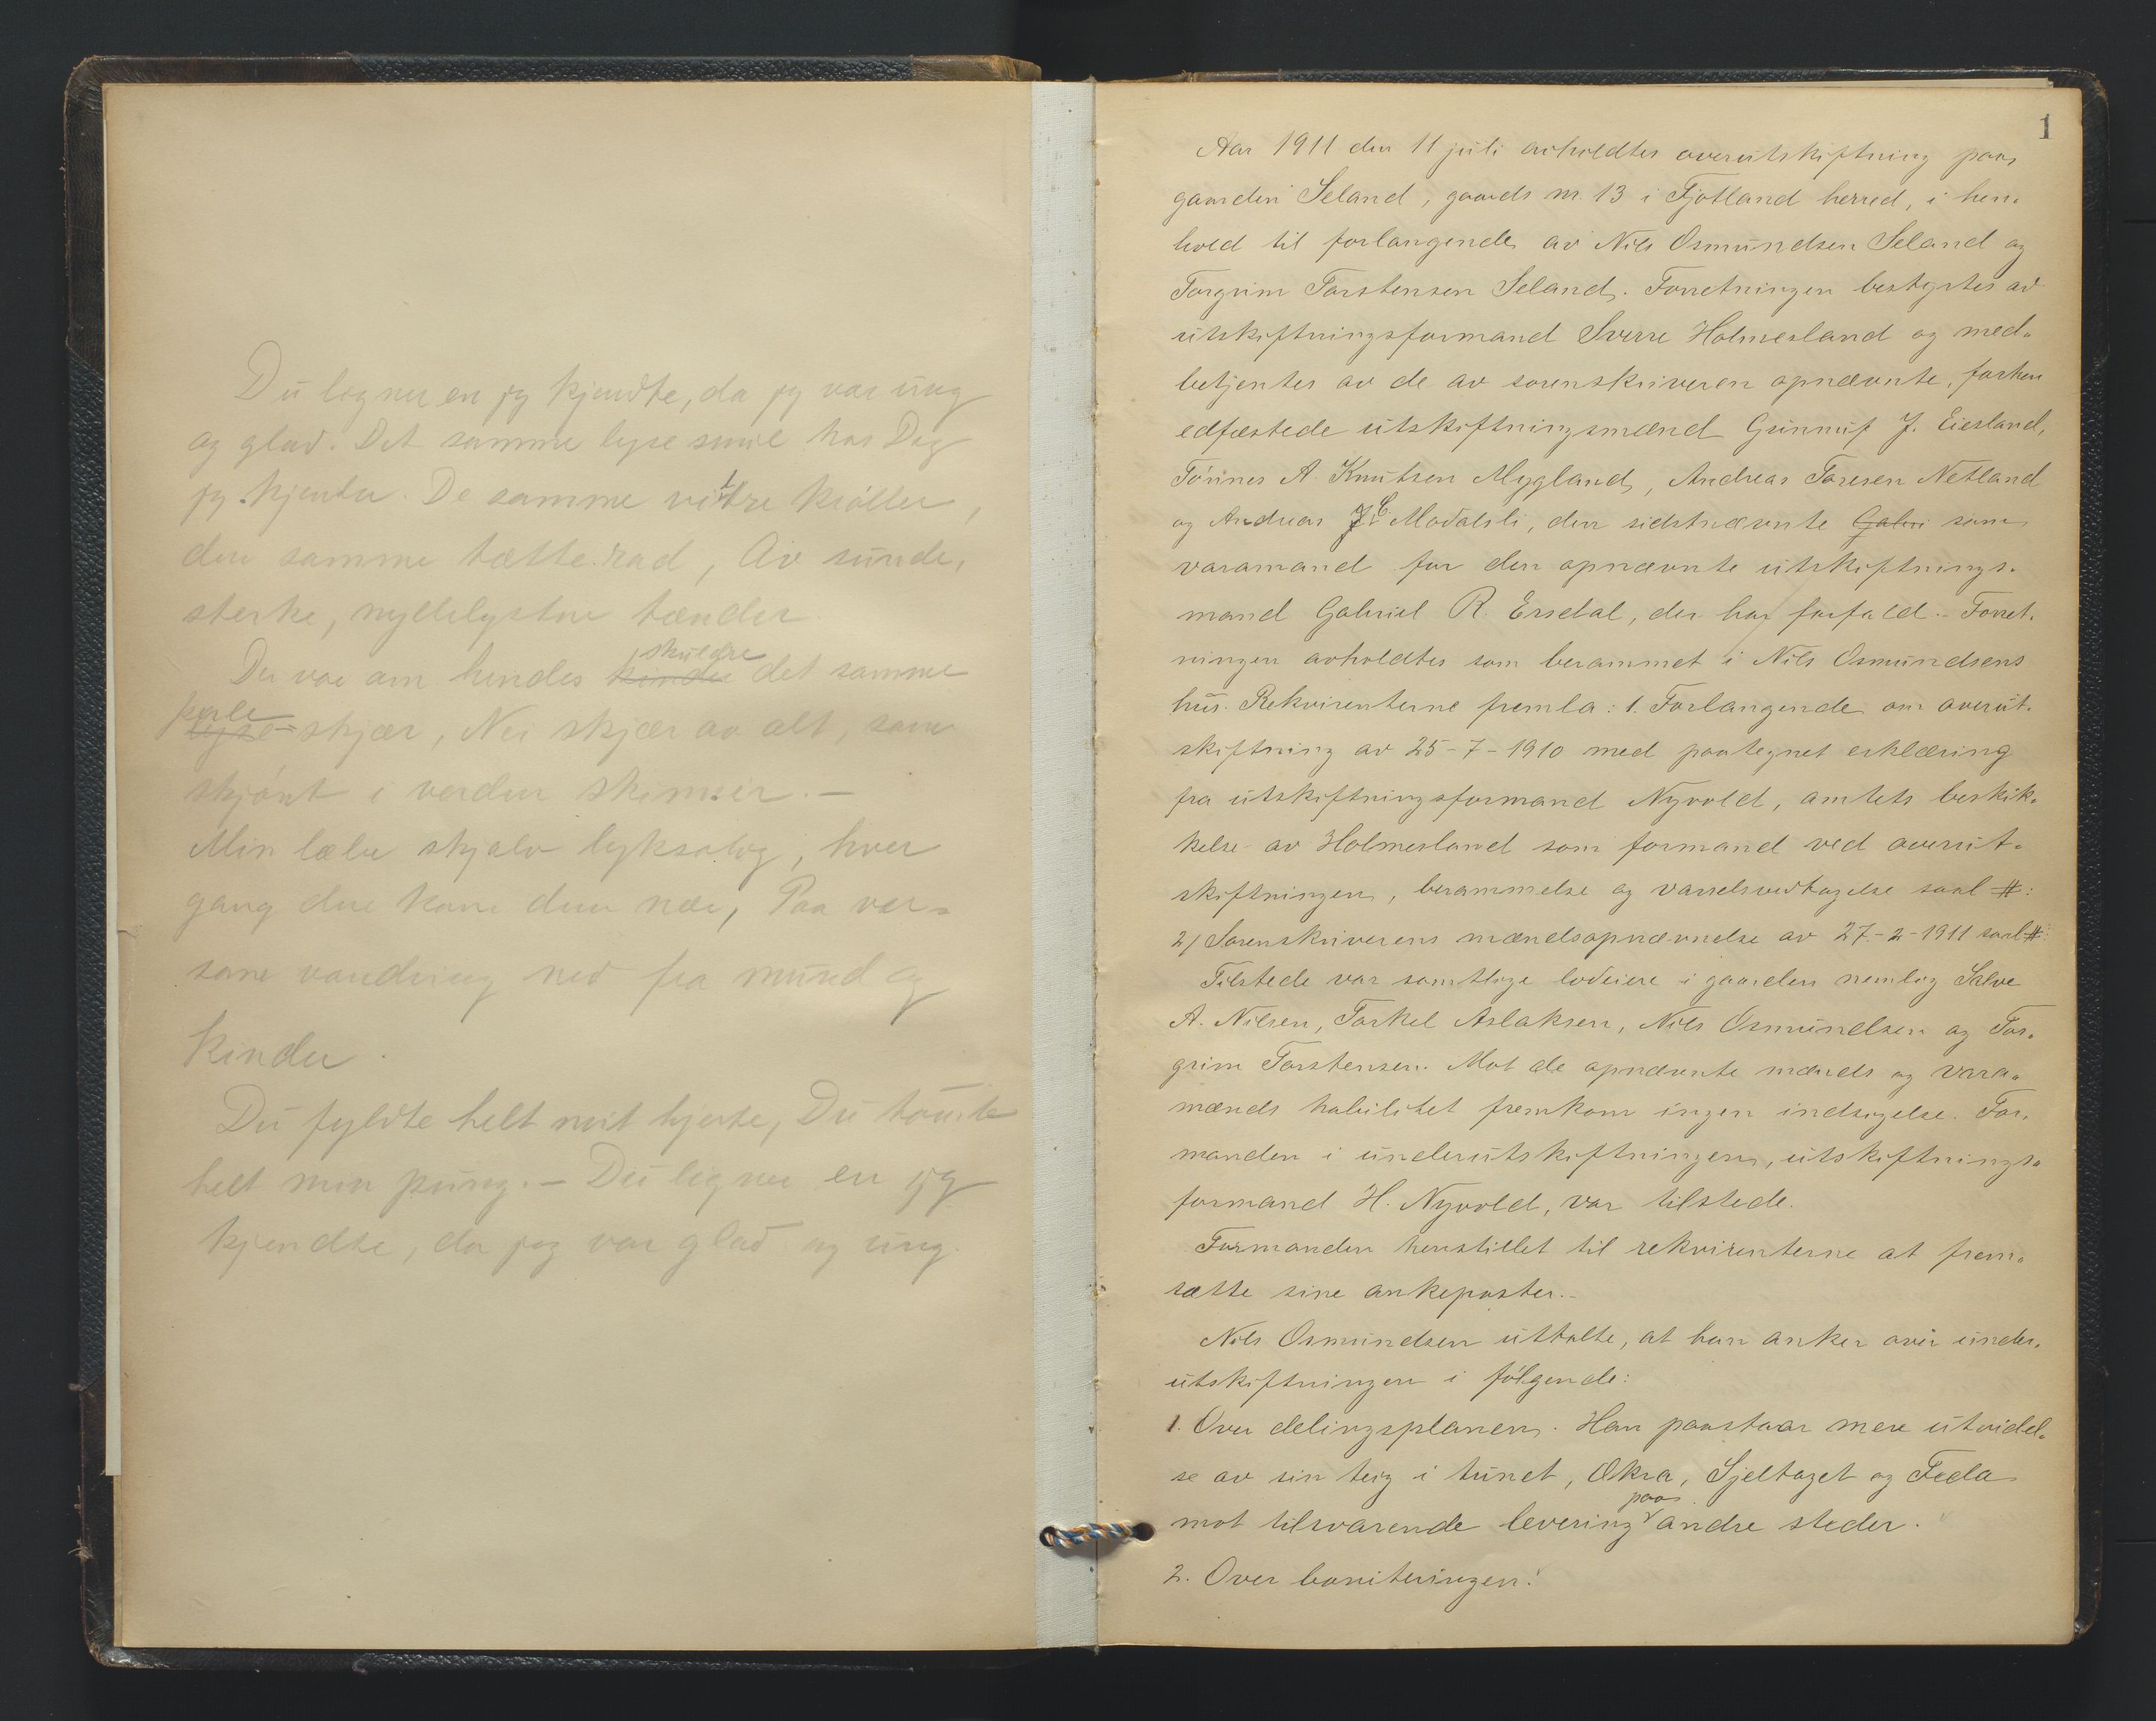 Du ligner en jeg kjendte, da jeg var ung
og glad. Det samme lyse smil hos Dig
jeg kjender. De samme vittre krøller,
den samme tætte rad, Av sunde,
sterke, nydelystne tænder.
Der var om hendes kinder skuldre det samme
lyse- perle skjær, Nei skjær av alt, som
skjønt i verden skinner.—
Min læbe skjalv lyksalig, hver
gang den kom dem nær, Paa var-
som vandring ned fra mund og
kinder.
Du fyldte helt mit hjerte, Du tømte
helt min pung.— Du ligner en jeg
kjendte, da jeg var glad og ung.
1
Aar 1911 den 11 juli avholdtes overutskiftning paa
gaarden Seland, gaards nr. 13 i Fjotland herred, i hen-
hold til forlangende av Nils Osmundsen Seland og
Torgrim Torstensen Seland. Forretningen bestyrtes av
utskiftningsformand Sverre Holmesland og med-
betjentes av de av sorenskriveren opnævnte, forhen
edfæstede utskiftningsmænd Gunnuf J. Eiesland,
Tønnes A. Knutsen Mygland, Andreas Taresen Netland
og Andreas E. Modalsli, den sidstnævnte Gabri som
varamand for den opnævnte utskiftnings-
mand Gabriel R. Ersdal, der har forfald.- Forret-
ningen avholdtes som berammet i Nils Osmundsens
hus. Rekvirenterne fremla: 1. Forlangende om overut-
skiftning av 25-7-1910 med paategnet erklæring
fra utskiftningsformand Nyvold, amtets beskik-
kelse av Holmesland som formand ved overut-
skiftningen, berammelse og varselsvedtagelse saal #:
2/ Sorenskriverens mændsopnævnelse av 27-2-1911 saal #:
Tilstede var samtlige lodeiere i gaarden nemlig Salve
A. Nilsen, Torkel Aslaksen, Nils Osmundsen og Tor-
grim Torstensen. Mot de opnævnte mænds og vara-
mænds habilitet fremkom ingen indsigelse. For-
manden i underutskiftningen, utskiftnings-
formand H. Nyvold, var tilstede.
Formanden henstillet til rekvirenterne at frem-
sætte sine ankeposter.-
Nils Osmundsen uttalte, at han anker over under-
utskiftningen i følgende:
1. Over delingsplanen. Han paastaar mere utvidel-
se av sin teig i tunet, Økra, Sjeltaget og Feda
mot tilsvarende levering paa andre steder.
2. Over boniteringen: